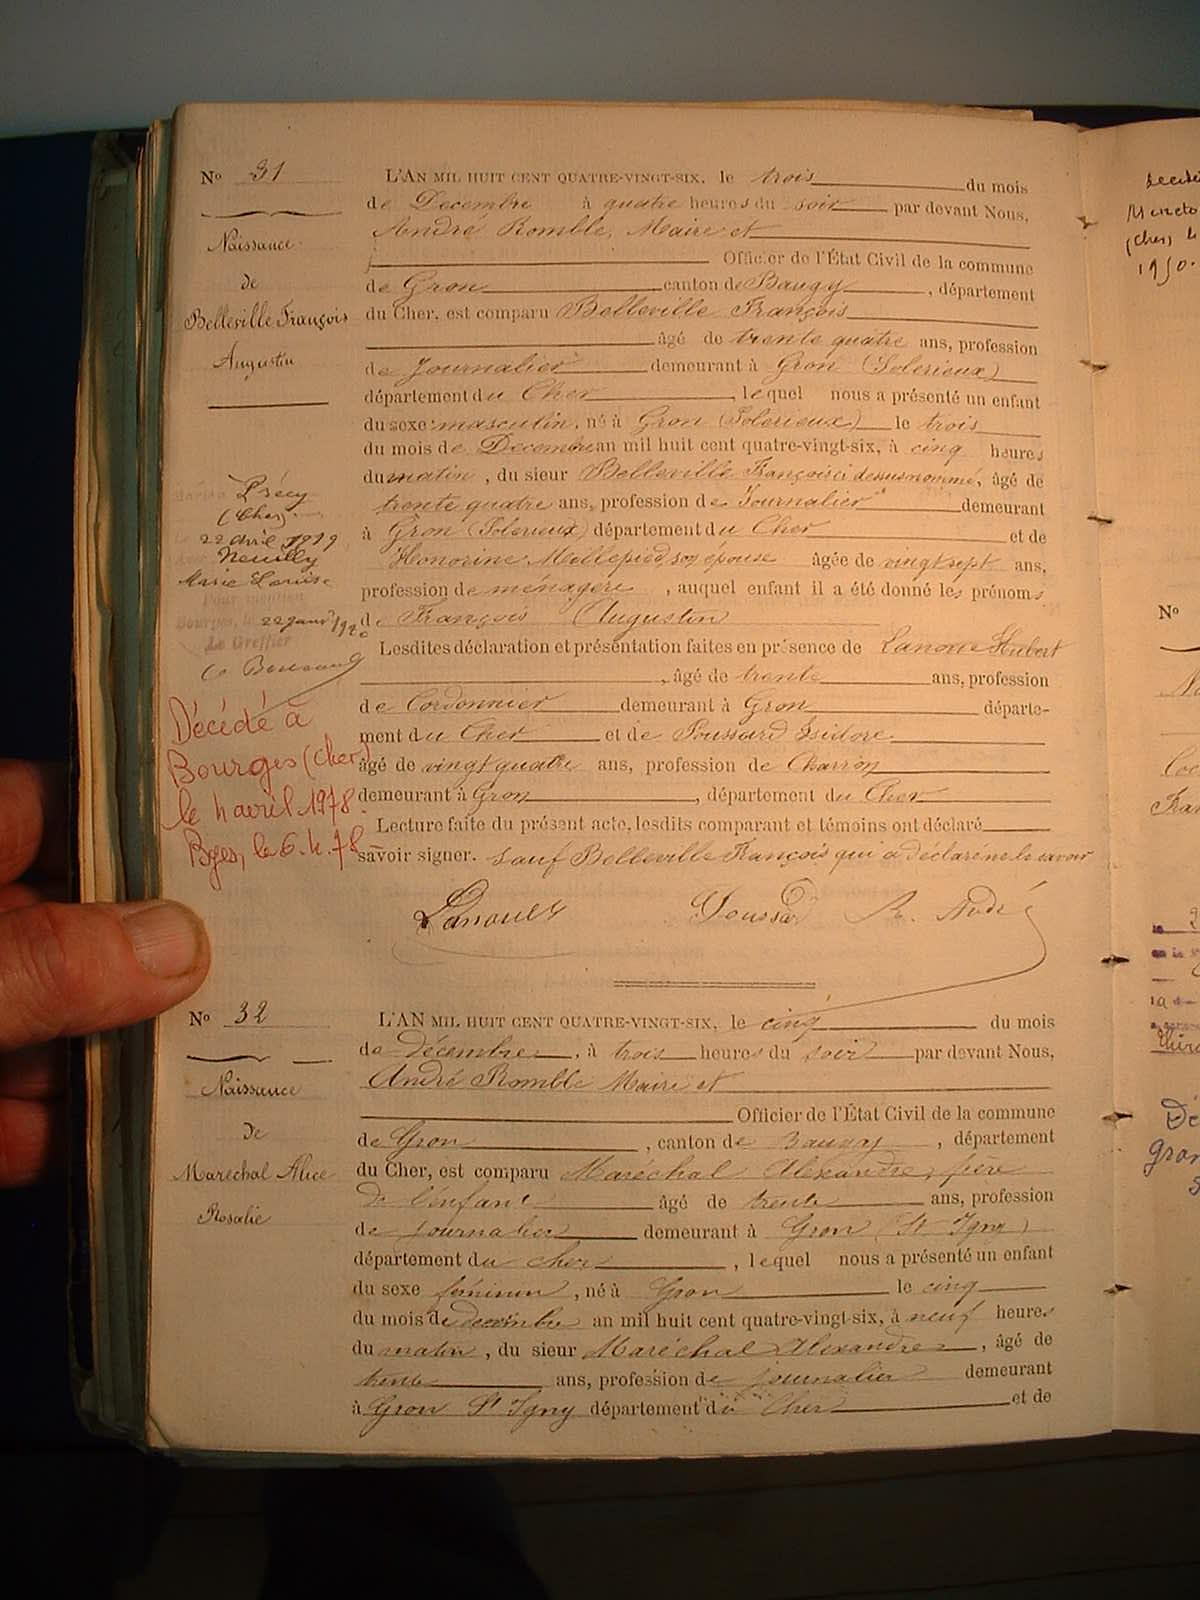 No 31
Naissance
de
Belleville François
Augustin
L'AN MIL HUIT CENT QUATRE-VINGT-SIX, le trois du mois
de Decembre à quatre heures du soir par devant Nous,
André Romble, Maire et
Officier de l'État Civil de la commune
de Gron canton de Baugy, département
du Cher, est comparu Belleville François
âgé de trente quatre ans, profession
de Journalier demeurant à Gron (Solerieux)
département du Cher, lequel nous a présenté un enfant
du sexe masculin, né à Gron (Solerieux) le trois
du mois de Decembre an mil huit cent quatre-vingt-six, à cinq heures
du matin, du sieur Belleville François ci dessus nommé, âgé de
trente quatre ans, profession de Journalier demeurant
à Gron (Solerieux) département du Cher et de
Honorine Millepied son épouse âgée de vingt sept ans,
profession de ménagère, auquel enfant il a été donné les prénoms
de François Augustin
Lesdites déclaration et présentation faites en présence de Lanoue Hubert
, âgé de trente ans, profession
de Cordonnier demeurant à Gron départe-
ment du Cher et de Poussard Isidore
âgé de vingt quatre ans, profession de Charron
demeurant à Gron, département du Cher
Lecture faite du présent acte, lesdits comparant et témoins ont déclaré
savoir signer. sauf Belleville François qui a déclaré ne le savoir
Lanoue H Poussard R. André
Précy
(Cher)
22 avril 1919
Neuilly
Marie Louise
Pour mention
Bourges, le 22 janv 1920
Le Greffier
Décédé à
Bourges (Cher)
le 4 avril 1978.
Bges, le 6.4.78
No 32
Naissance
de
Maréchal Alice
Rosalie
L'AN MIL HUIT CENT QUATRE-VINGT-SIX, le cinq du mois
de décembre, à trois heures du soir par devant Nous,
André Romble Maire et
Officier de l'État Civil de la commune
de Gron, canton de Baugy, département
du Cher, est comparu Maréchal Alexandre, père
de l'enfant âgé de trente ans, profession
de journalier demeurant à Gron (St Igny)
département du cher, lequel nous a présenté un enfant
du sexe féminin, né à Gron le cinq
du mois de decembre an mil huit cent quatre-vingt-six, à neuf heures
du matin, du sieur Maréchal Alexandre, âgé de
trente ans, profession de journalier demeurant
à Gron St Igny département du Cher et de
(Cher) le
1950.
No